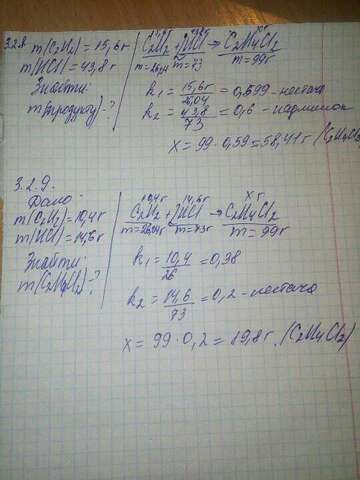 3.2.8. m(C2H2)=15,6г
m(HCl)=43,8г
Знайти:
m(продукту)-?
15,6г 43,8г x г
C2H2+2HCl→C2H4Cl2
m=26,04 m=73 m=99г
k1=15,6г/26,04=0,599-нестача
k2=43,8/73=0,6-надлишок
x=99·0,59=58,41г (C2H4Cl2)
3.2.9.
Дано:
m(C2H2)=10,4г
m(HCl)=14,6г
Знайти:
m(C2H4Cl2)-?
10,4г 14,6г x г
C2H2+2HCl→C2H4Cl2
m=26,04г m=73г m=99г
k1=10,4/26=0,38
k2=14,6/73=0,2-нестача
x=99·0,2=19,8г. (C2H4Cl2)